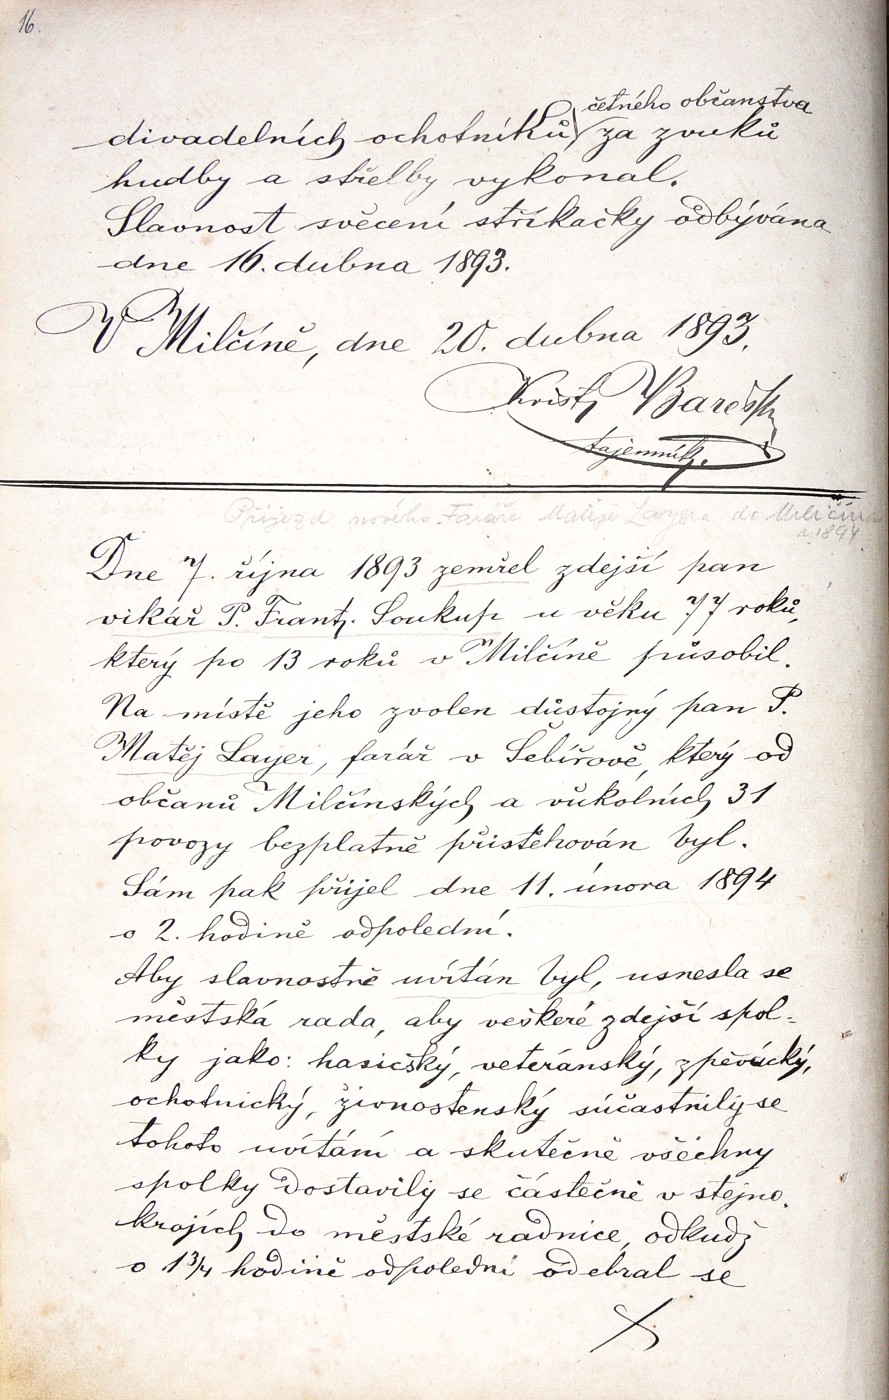 16.
četného občanstva
divadelních ochotníků za zvuků
hudby a střelby vykonal.
Slavnost svěcení stříkačky odbývána
dne 16. dubna 1893.
V Milčíně, dne 20. dubna 1893.
tajemník.
Příjezd nového Faráře Matěje Layera do Milčína
r. 1894
Dne 7. října 1893 zemřel zdejší pan
vikář P. Frant. Soukup u věku 77 roků,
který po 13 roků v Milčíně působil.
Na místě jeho zvolen důstojný pan P.
Matěj Layer, farář v Šebířově, který od
občanů Milčínských a vůkolních 31
povozy bezplatně přistěhován byl.
Sám pak přijel dne 11. února 1894
o 2. hodině odpolední.
Aby slavnostně uvítán byl, usnesla se
městská rada, aby veškeré zdejší spol-
ky jako: hasičský, veteránský, zpěvácký,
ochotnický, živnostenský súčastnily se
tohoto uvítání a skutečně všechny
spolky dostavily se částečně v stejno-
krojích do městské radnice, odkudž
o 1 3/4 hodině odpolední odebral se